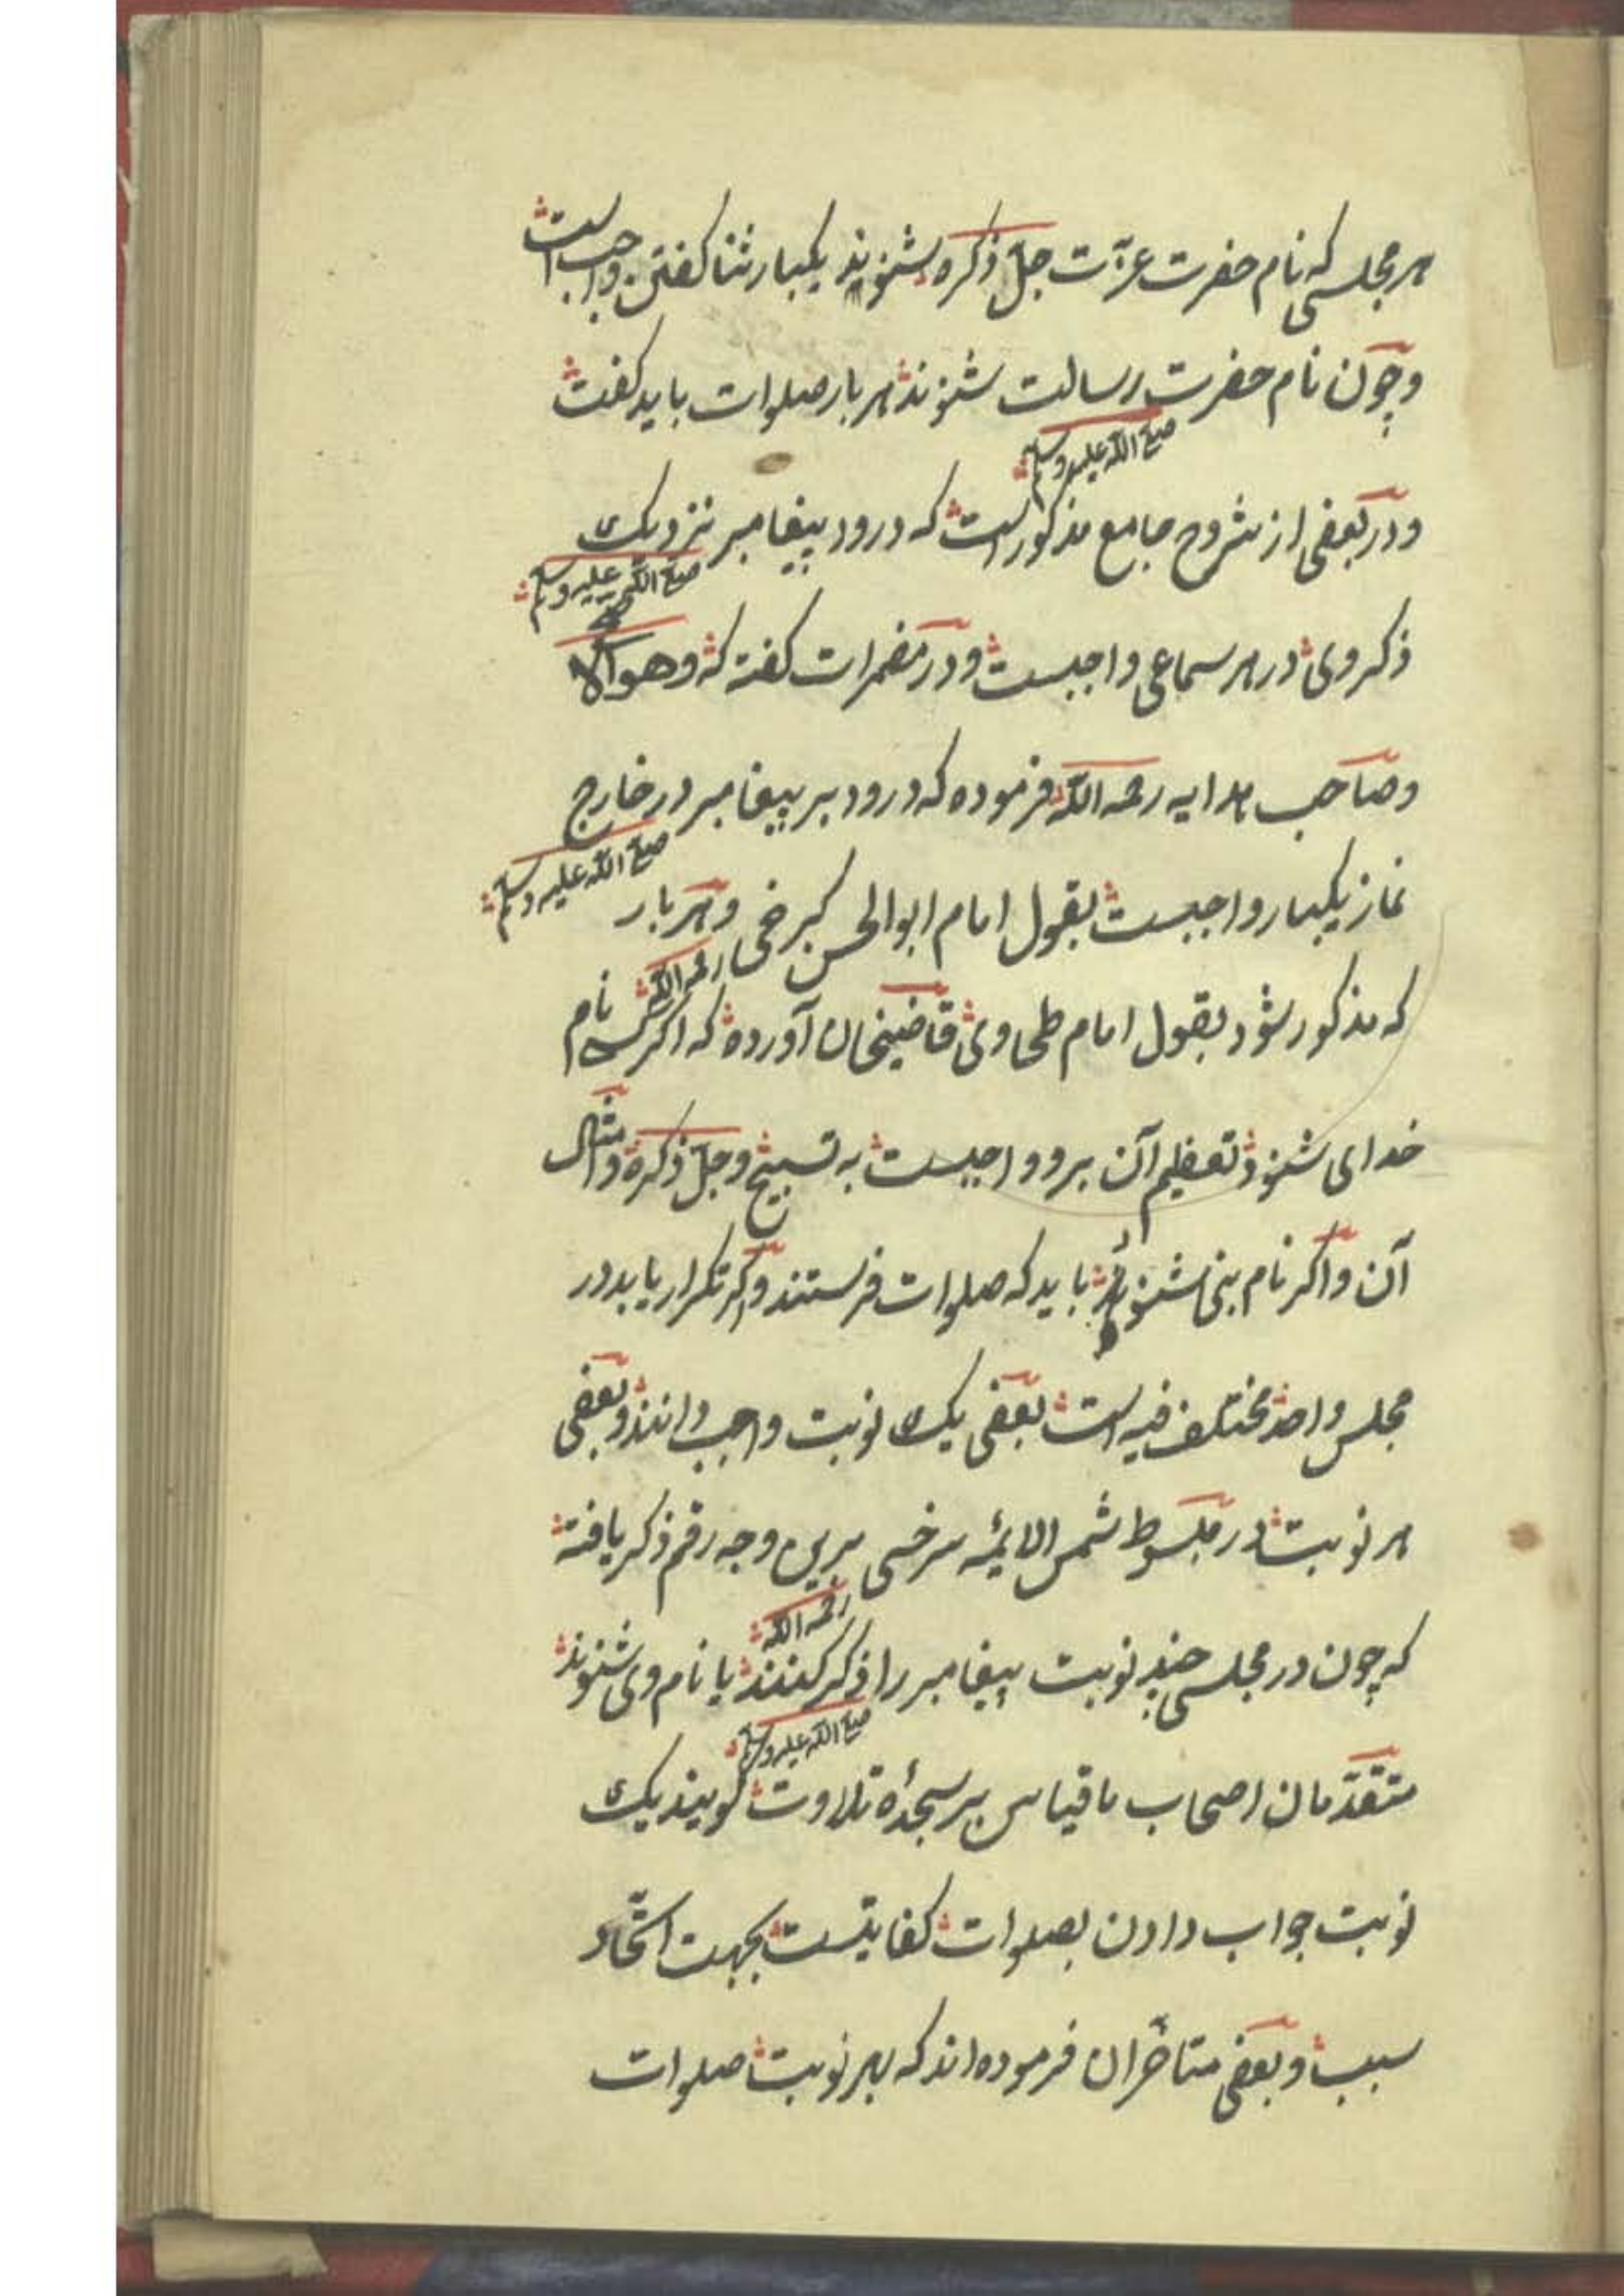 هر مجلسی که نام حضرت عزّت جلّ ذکره بشنوند یکبار ثنا گفتن واجب است
وچون نام حضرت رسالت شنوند هر بار صلوات باید گفت
صلی الله علیه وسلم
ودر بعضی از شروح جامع مذکور است که درود پیغامبر نزدیک
صلی الله علیه وسلم
ذکر وی در هر سماعی واجبست ودر مضمرات گفته که وهو الاصح
وصاحب هدایه رحمه الله فرموده که درود بر پیغامبر در خارج
صلی الله علیه وسلم
نماز یکبار واجبست بقول امام ابوالحسن کرخی وهر بار
رحمه الله
که مذکور شود بقول امام طحاوی قاضیخان آورده که اکر کسی نام
خدای شنود تعظیم آن برو واجبست به تسبیح وجلّ ذکره وامثال
آن واکر نام نبی شنوند باید که صلوات فرستند واکر تکرار یابد در
مجلس واحد مختلف فیه است بعضی یک نوبت واجب دانند وبعضی
هر نوبت در مبسوط شمس الایمّه سرخسی برین وجه رقم ذکر یافته
رحمه الله
که چون در مجلسی چند نوبت پیغامبر را ذکر کنند یا نام وی شنوند
صلی الله علیه وسلم
متقدّمان اصحاب ما قیاس بر سجدهٔ تلاوت گویند یک
نوبت جواب دادن بصلوات کفایتست بجهت اتّحاد
سبب وبعضی متأخّران فرموده اند که بهر نوبت صلوات